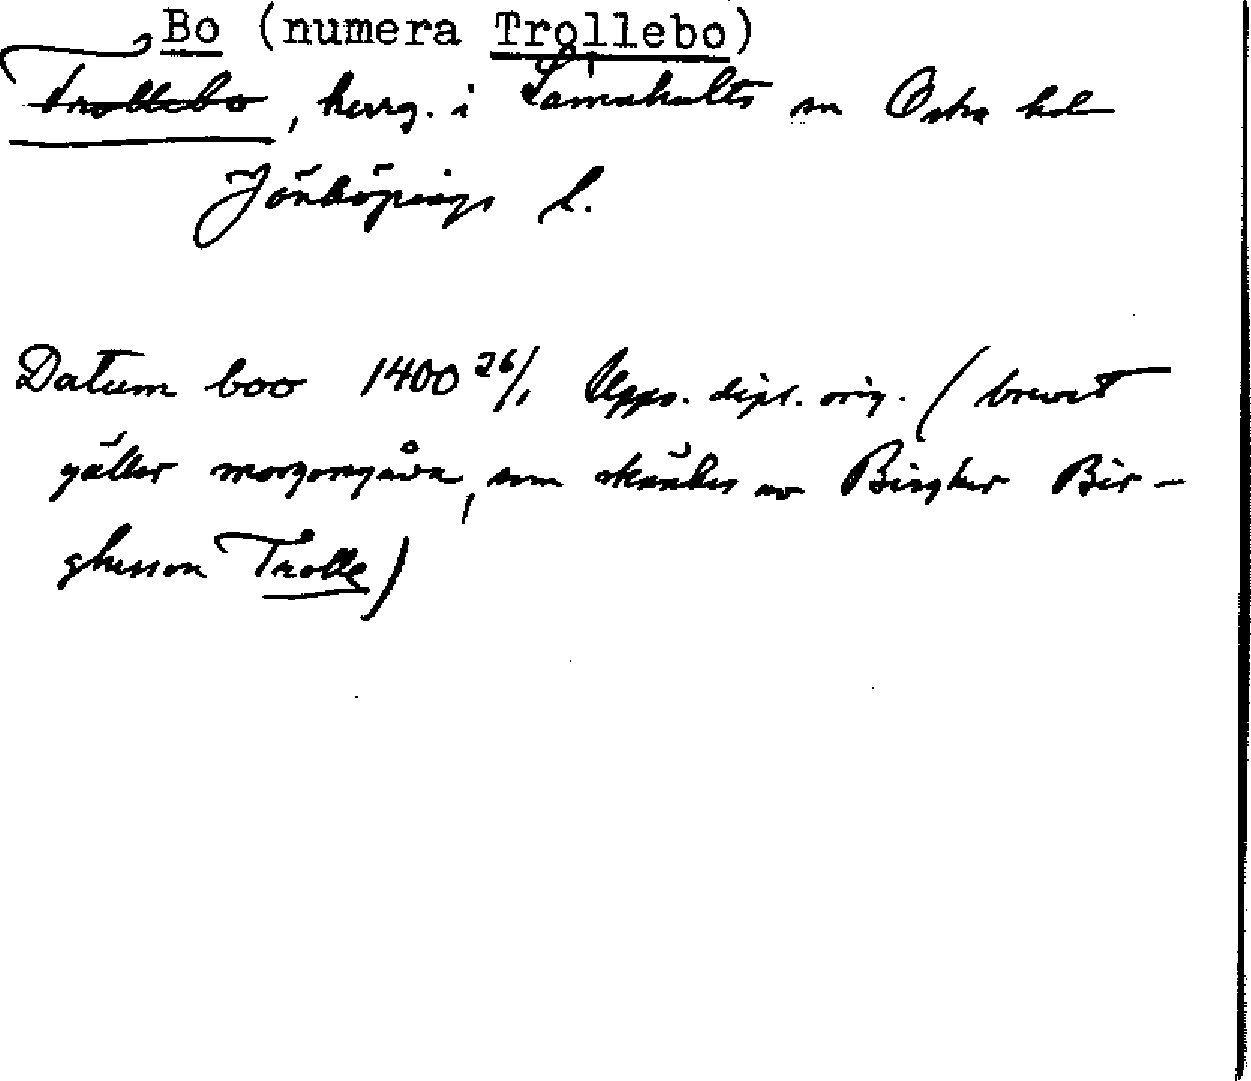 Bo (numera Trollebo)
Trollebo, herrg. i Lannaskults sn Östra hd
Jönköpings l.
Datum boo 1400 26/1 Upps. dipl. orig. (brevet
gäller morgongåva, som skänkes av Birgher Bir-
ghersson Trolle)